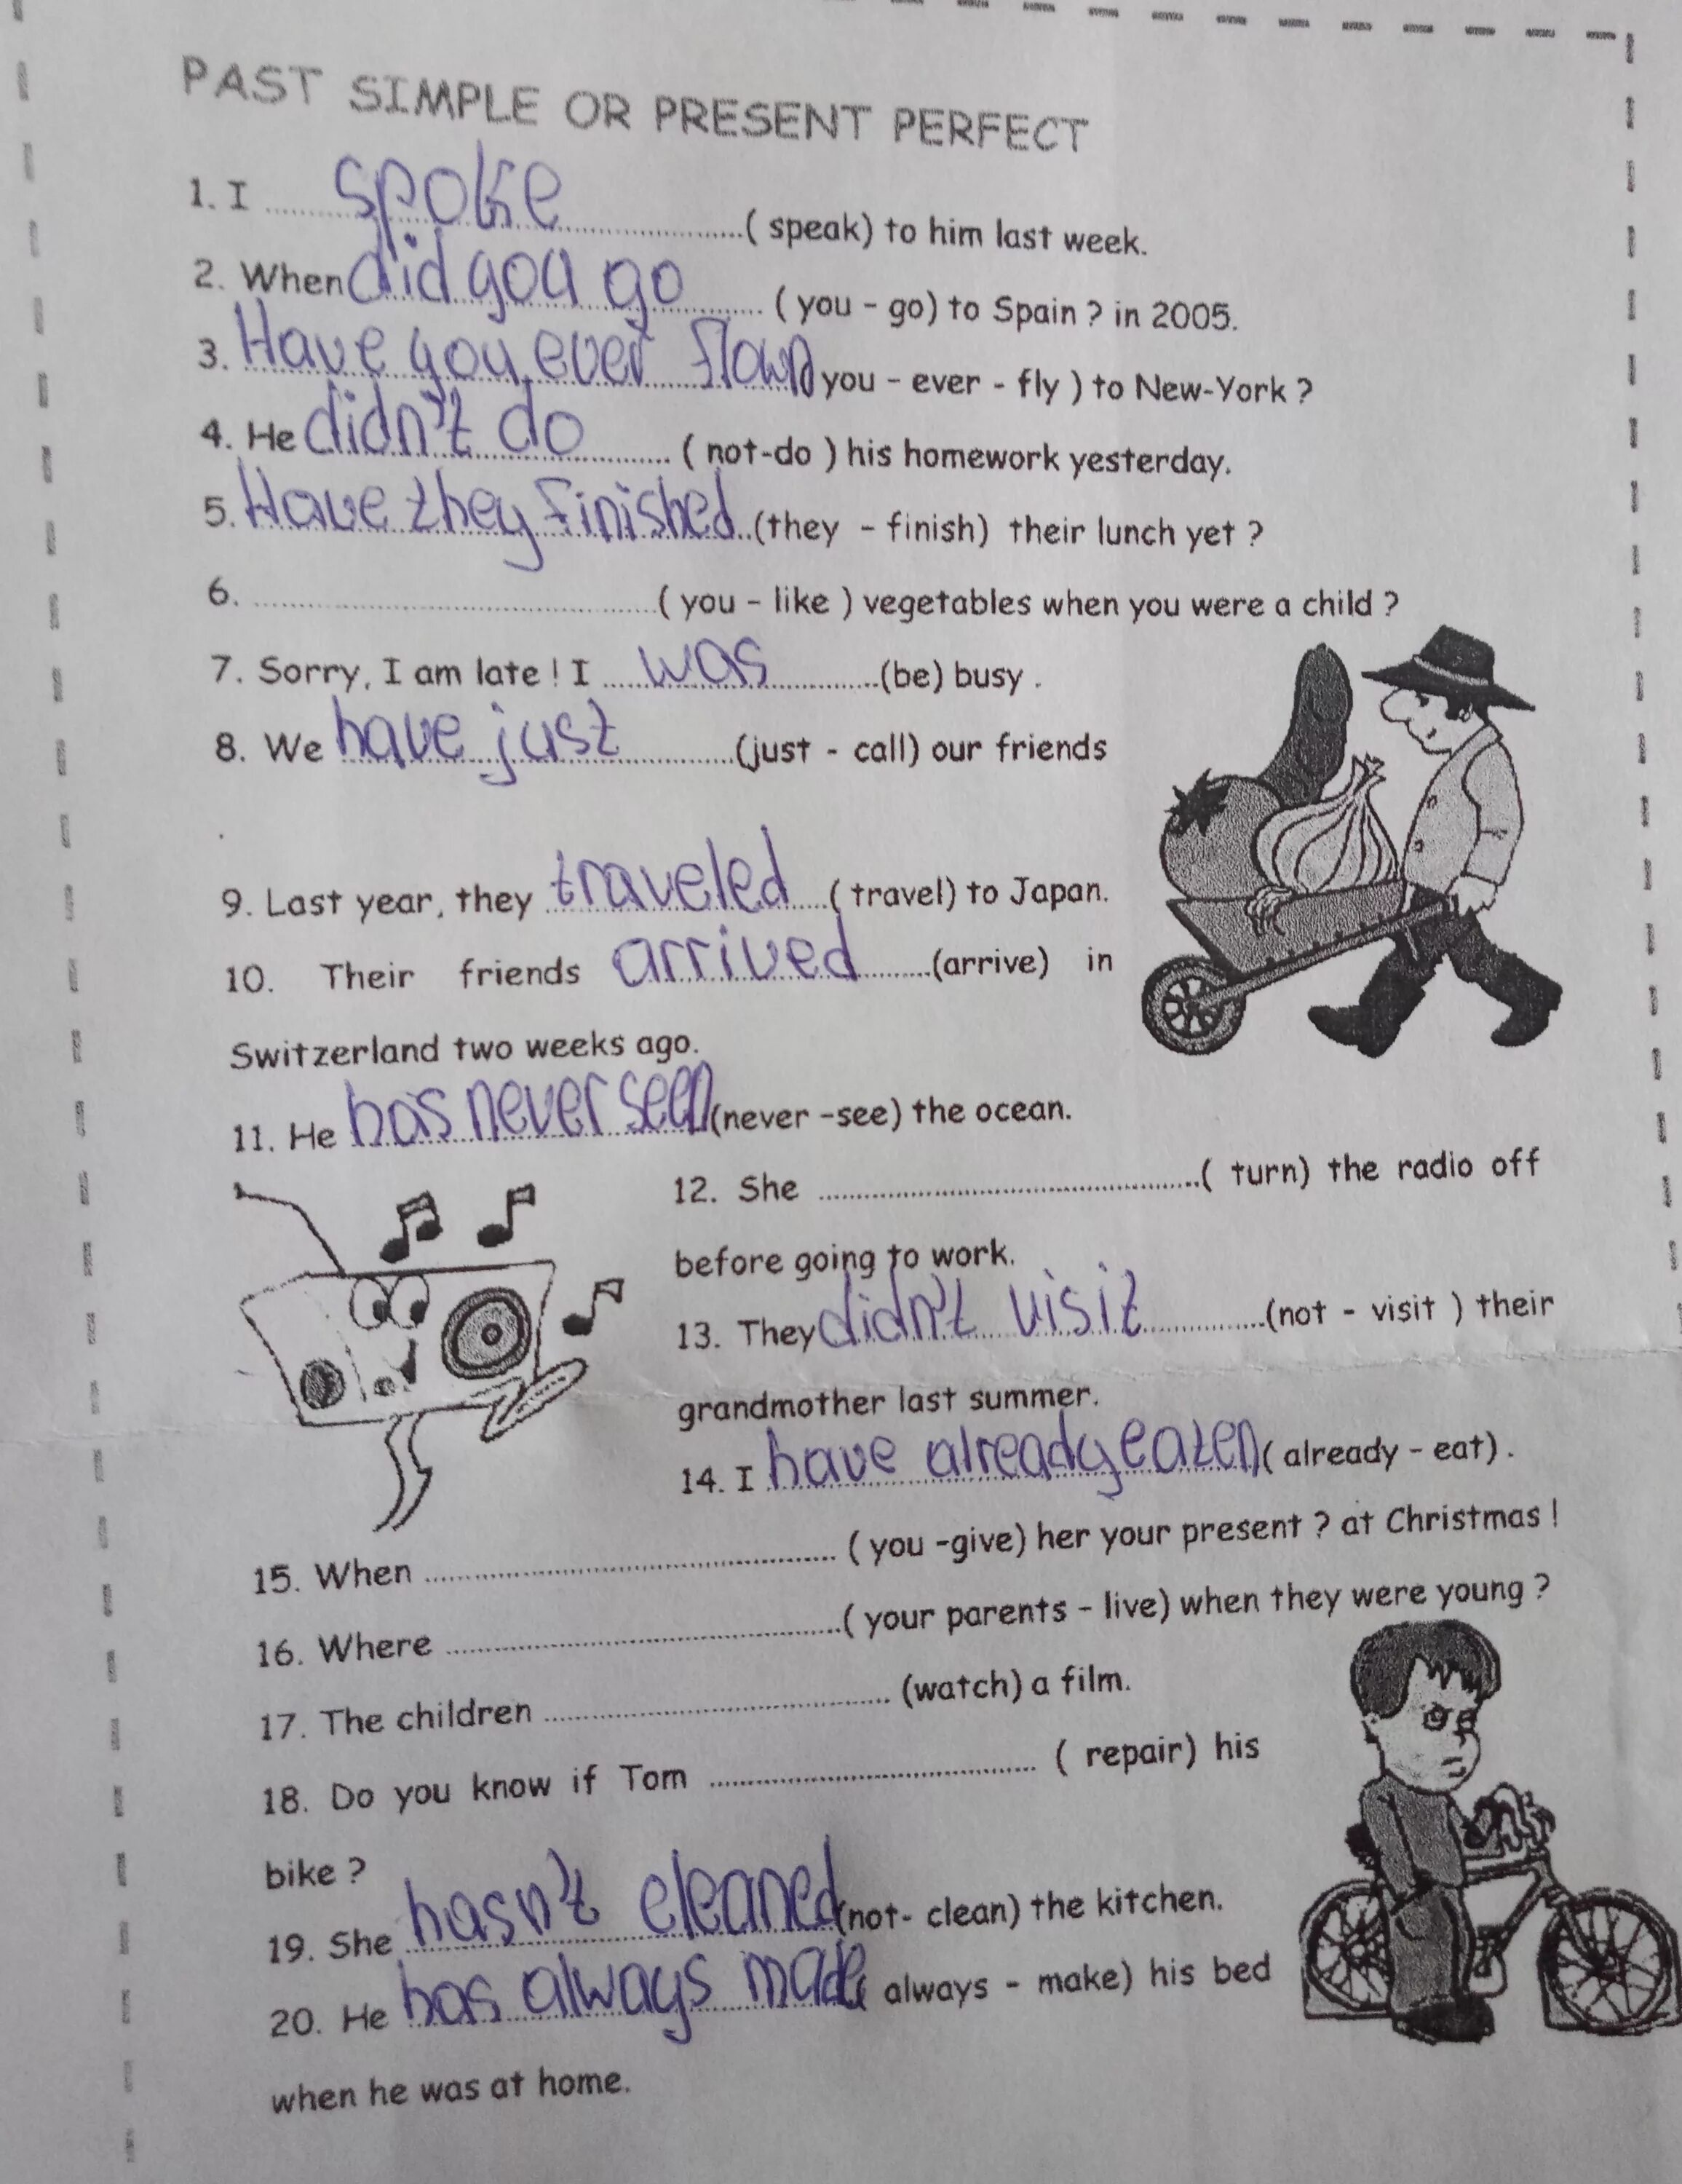 PAST SIMPLE OR PRESENT PERFECT
1. I ...... spoke ......( speak) to him last week.
2. When did you go ...... ( you - go) to Spain ? in 2005.
3. Have you ever flown you - ever - fly ) to New-York ?
4. He didn't do ...... ( not-do ) his homework yesterday.
5. Have they finished..(they - finish) their lunch yet ?
6. ............( you - like ) vegetables when you were a child ?
7. Sorry, I am late ! I ... was ......(be) busy .
8. We have just ......(just - call) our friends
9. Last year, they traveled ...( travel) to Japan.
10. Their friends arrived ......(arrive) in
Switzerland two weeks ago.
11. He has never seen (never -see) the ocean.
12. She ............( turn) the radio off
before going to work.
13. They didn't visit ......(not - visit ) their
grandmother last summer.
14. I have already eaten ( already - eat) .
15. When ............ ( you -give) her your present ? at Christmas !
16. Where ............( your parents - live) when they were young ?
17. The children ............ (watch) a film.
18. Do you know if Tom ............ ( repair) his
bike ?
19. She hasn't cleaned (not- clean) the kitchen.
20. He has always made always - make) his bed
when he was at home.